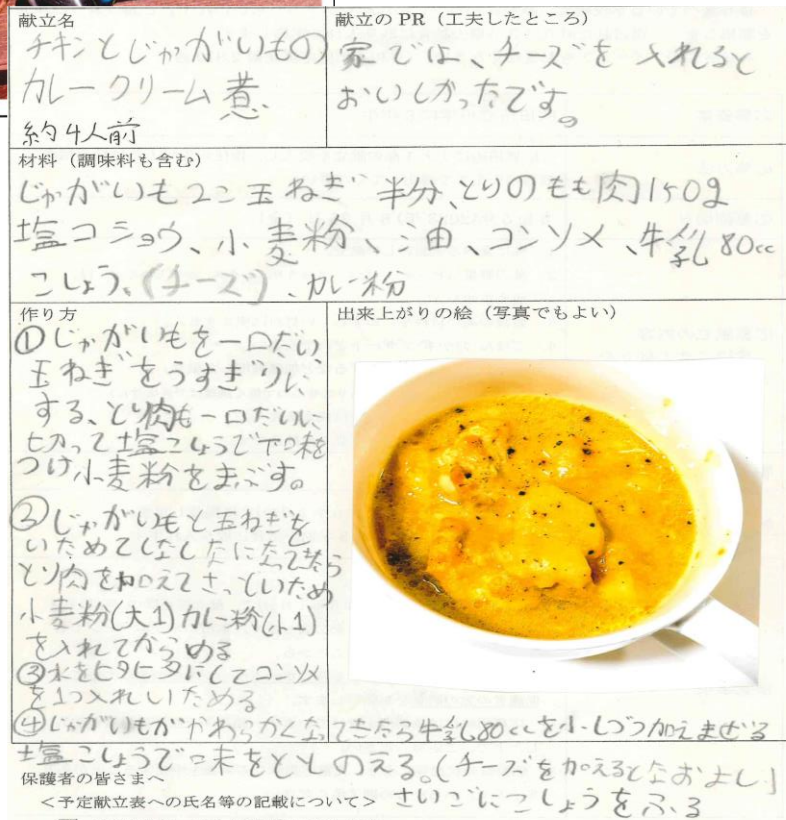 献立名
チキンとじゃがいもの
カレークリーム煮
約4人前
献立の PR（工夫したところ）
家では、チーズを入れると
おいしかったです。
材料（調味料も含む）
じゃがいも2コ玉ねぎ 半分、とりのもも肉150g
塩コショウ、小麦粉、油、コンソメ、牛乳80cc
こしょう、(チーズ)、カレー粉
作り方
①じゃがいもを一口だい、
玉ねぎをうすぎりに
する、とり肉も一口だいに
切って塩こしょうで下味を
つけ小麦粉をまぶす。
②じゃがいもと玉ねぎを
いためてしなしなになってきたら
とり肉を加えてさっといため
小麦粉(大1)カレー粉(小1)
を入れてからめる
③水をヒタヒタにしてコンソメ
を1つ入れいためる
④じゃがいもがやわらかくなってきたら牛乳80ccを少しづつ加えまぜる
塩こしょうで味をととのえる。(チーズを加えるとなおよし)
さいごにこしょうをふる
出来上がりの絵（写真でもよい）
保護者の皆さまへ
＜予定献立表への氏名等の記載について＞